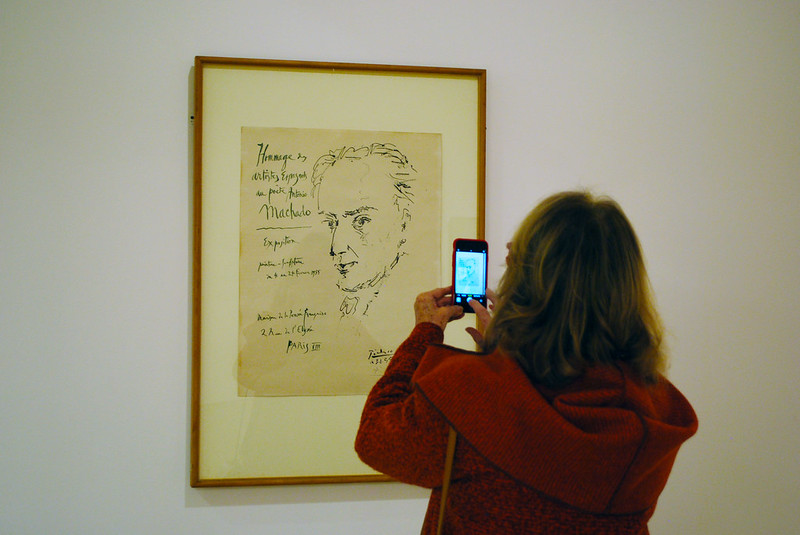 Hommage des
artistes Espagnols
au poète Antonio
Machado
Exposition
peinture - sculpture
du 4 au 24 février 1955
Maison de la Pensée française
2 Rue de l'Elysée
PARIS VIII
Picasso